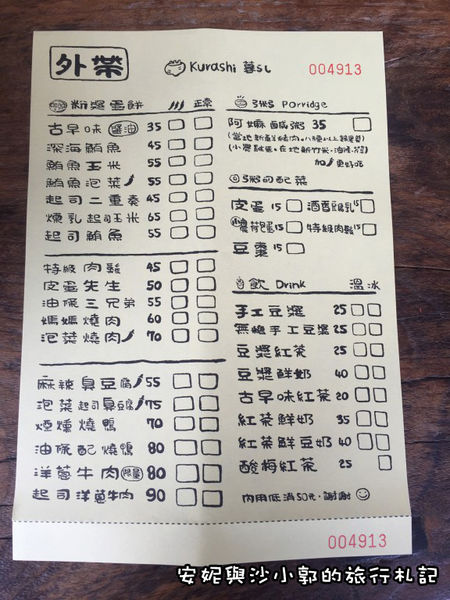 外帶
Kurashi 暮らし
004913
粉漿蛋餅 正常
古早味 醬油 35
深海鮪魚 45
鮪魚玉米 55
鮪魚泡菜 55
起司二重奏 45
燻乳起司玉米 65
起司鮪魚 55
特級肉鬆 45
皮蛋先生 50
油條三兄弟 55
媽媽燒肉 60
泡菜燒肉 70
麻辣臭豆腐 55
泡菜起司臭豆腐 75
煙燻燒鴨 70
油條配燒鴨 80
洋蔥牛肉 限量 80
起司洋蔥牛肉 90
粥 Porridge
阿嬤鹹粥 35
加 更好吃
粥の配菜
皮蛋 15
酒香豆腐乳 15
特級肉鬆 15
豆棗 15
飲 Drink 溫 冰
手工豆漿 25
無糖手工豆漿 25
豆漿紅茶 25
豆漿鮮奶 40
古早味紅茶 20
紅茶鮮奶 35
紅茶鮮豆奶 40
酸梅紅茶 25
內用低消50元,謝謝
004913
安妮與沙小郭的旅行札記